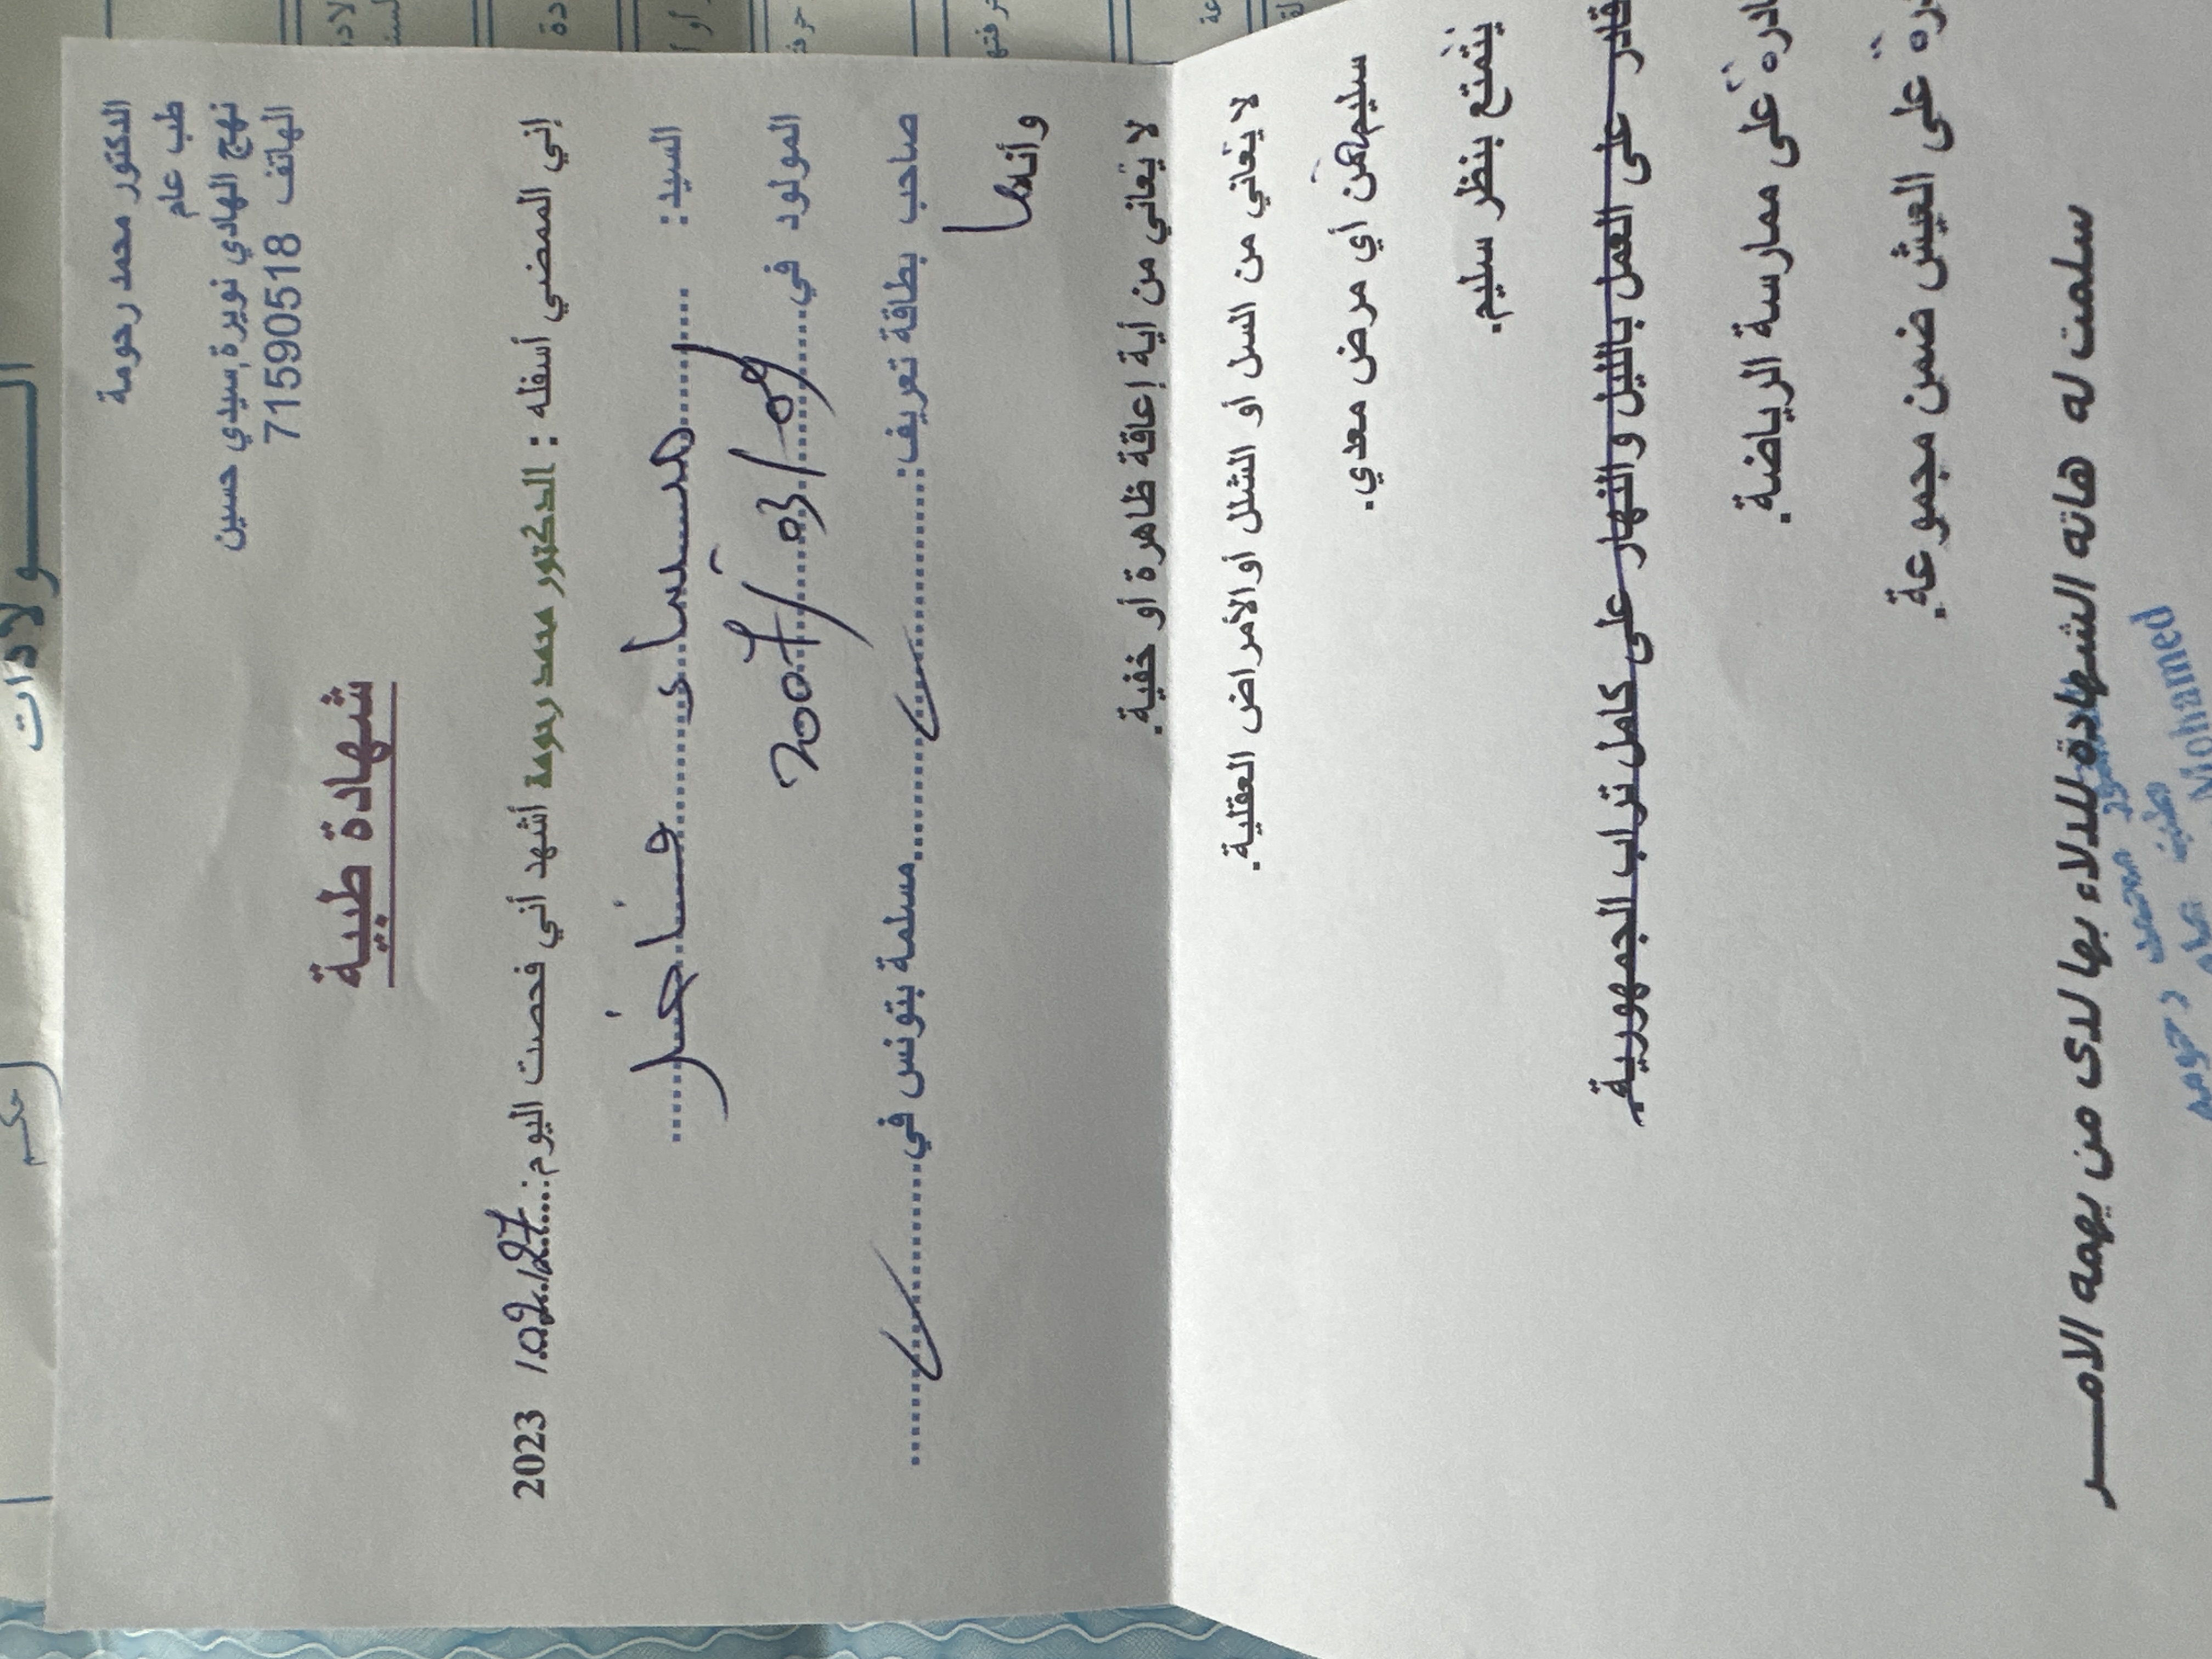 الدكتور محمد رحومة
طب عام
نهج الهادي نويرة سيدي حسين
الهاتف 71590518
شهادة طبية
إني الممضي أسفله : الدكتور محمد رحومة أشهد أني فحصت اليوم:....27/02/ 2023
السيد:
المولود في 09/03/2007
صاحب بطاقة تعريف: مسلمة بتونس في
وأنها
لا يعاني من أية إعاقة ظاهرة أو خفية.
لا يعاني من السل أو الشلل أو الأمراض العقلية.
سليمة من أي مرض معدي.
يتمتع بنظر سليم.
قادر على العمل بالليل والنهار على كامل تراب الجمهورية.
على ممارسة الرياضة.
على العيش ضمن مجموعة.
سلمت له هاته الشهادة للدلاء بها لدى من يهمه الامـــر
محمد رحومة
طب عام
Mohamed
الـــولادات